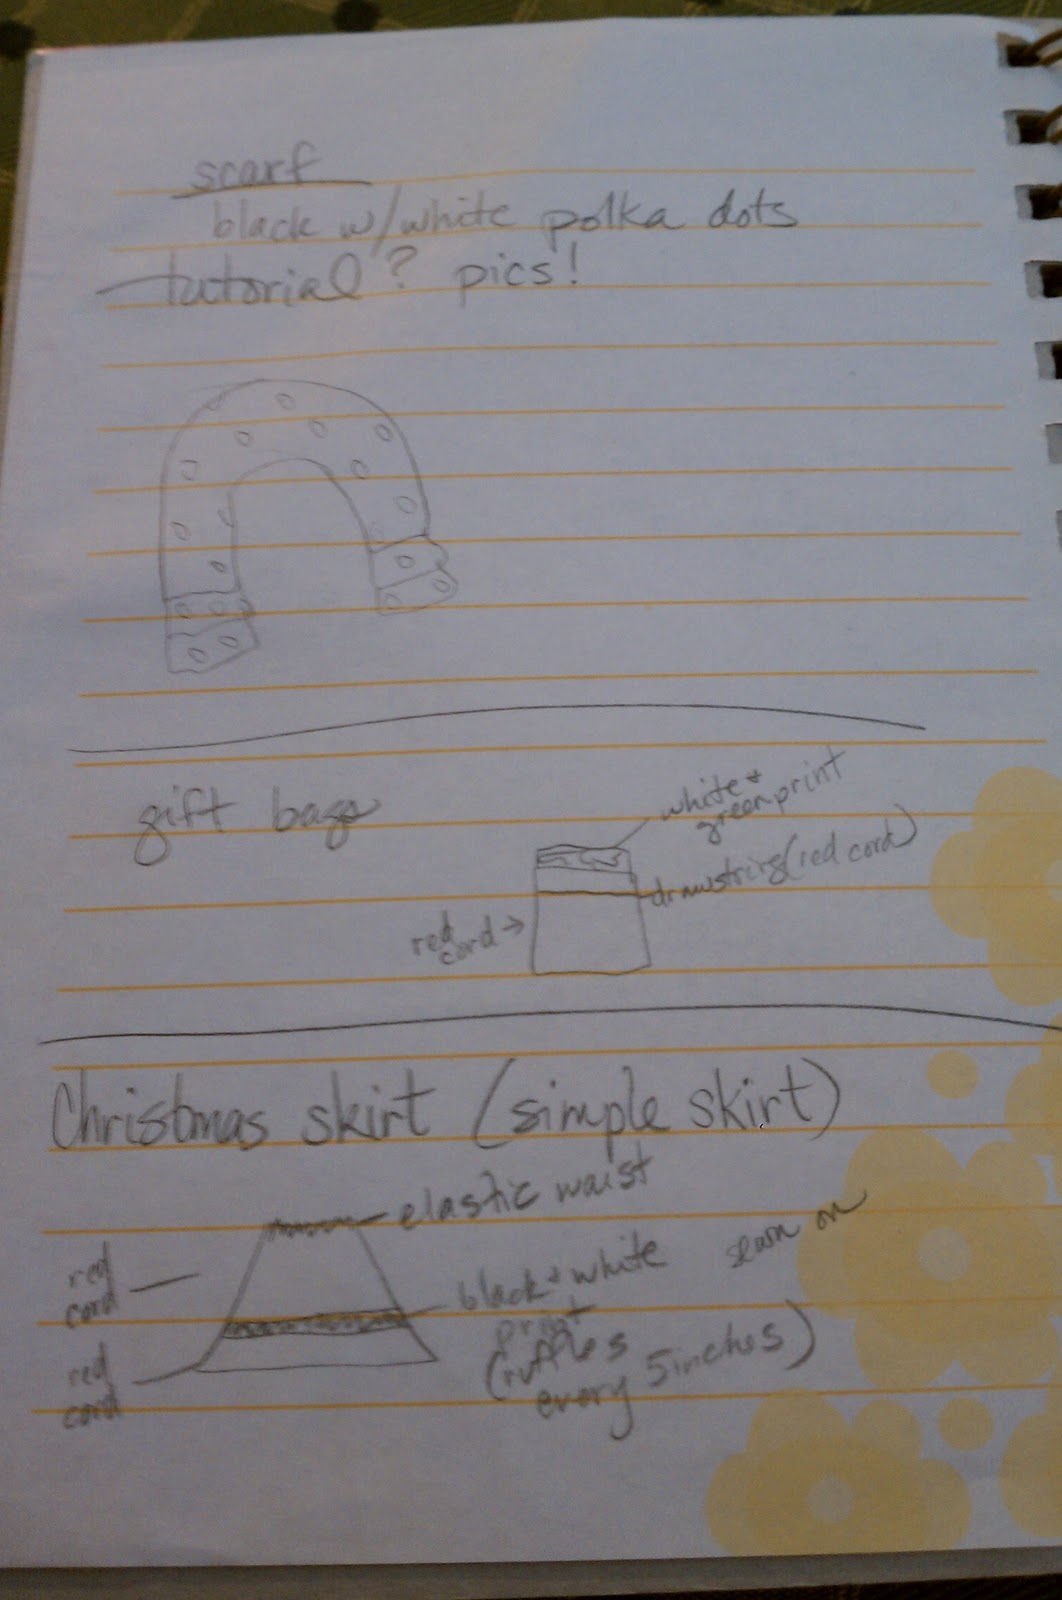 scarf
black w/white polka dots
tutorial? pics!
gift bags
white +
green print
drawstring (red cord)
red
cord →
Christmas skirt (simple skirt)
elastic waist
red
cord
black + white
print
(ruffles
every 5 inches)
sewn on
red
cord